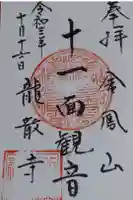 奉拝
金鳳山
十一面観音
龍散寺
令和三年
十月十二日